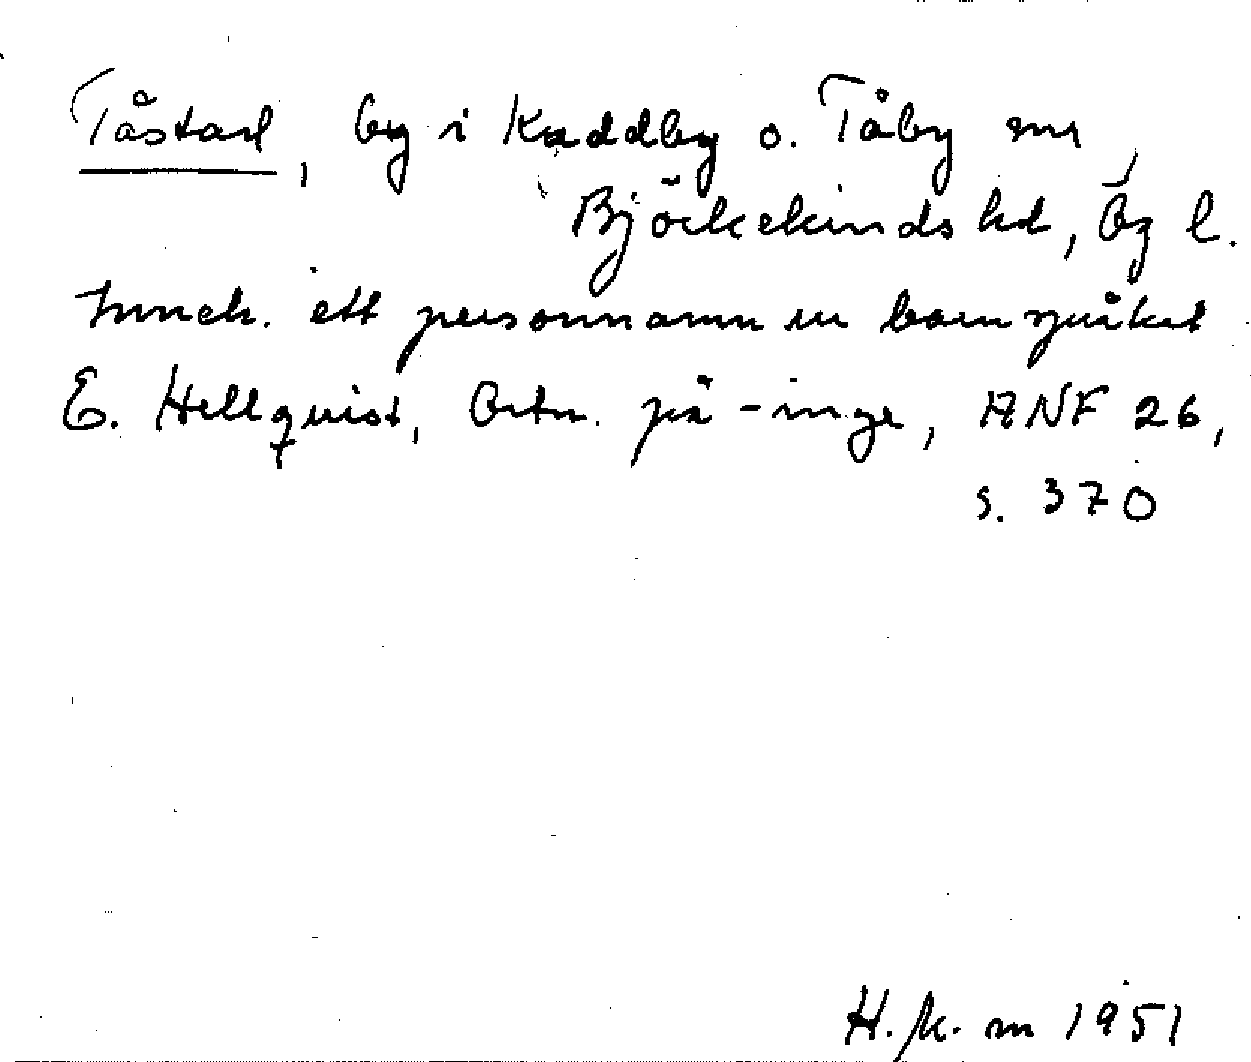 Tåstad, by i Kuddby o. Tåby snr,
Björkekinds hd, Ög l.
Inneh. ett personnamn ur barnspråket
E. Hellquist, Ortn. på -inge, ANF 26,
s. 370
H. k. m 1951